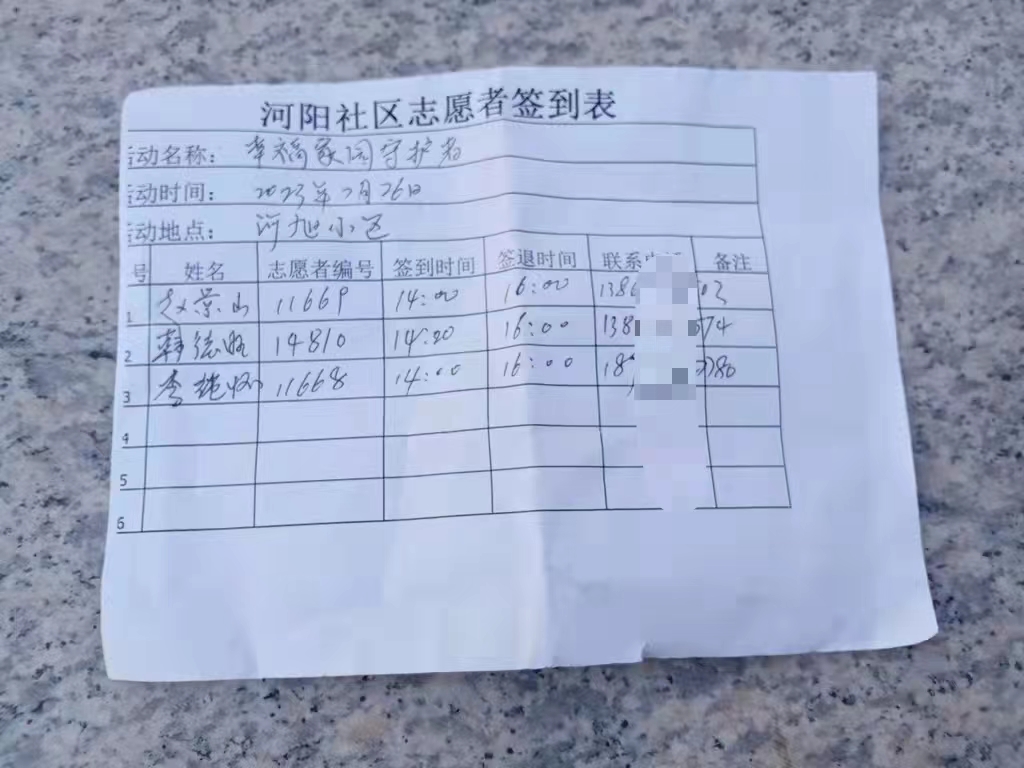 河阳社区志愿者签到表
活动名称: 幸福家园守护者
活动时间: 2023年2月26日
活动地点: 河旭小区
号 姓名 志愿者编号 签到时间 签退时间 联系 备注
1 赵景山 11669 14:00 16:00 138 03
2 韩德 14810 14:00 16:00 138 574
3 李 11668 14:00 16:00 18 3780
4
5
6